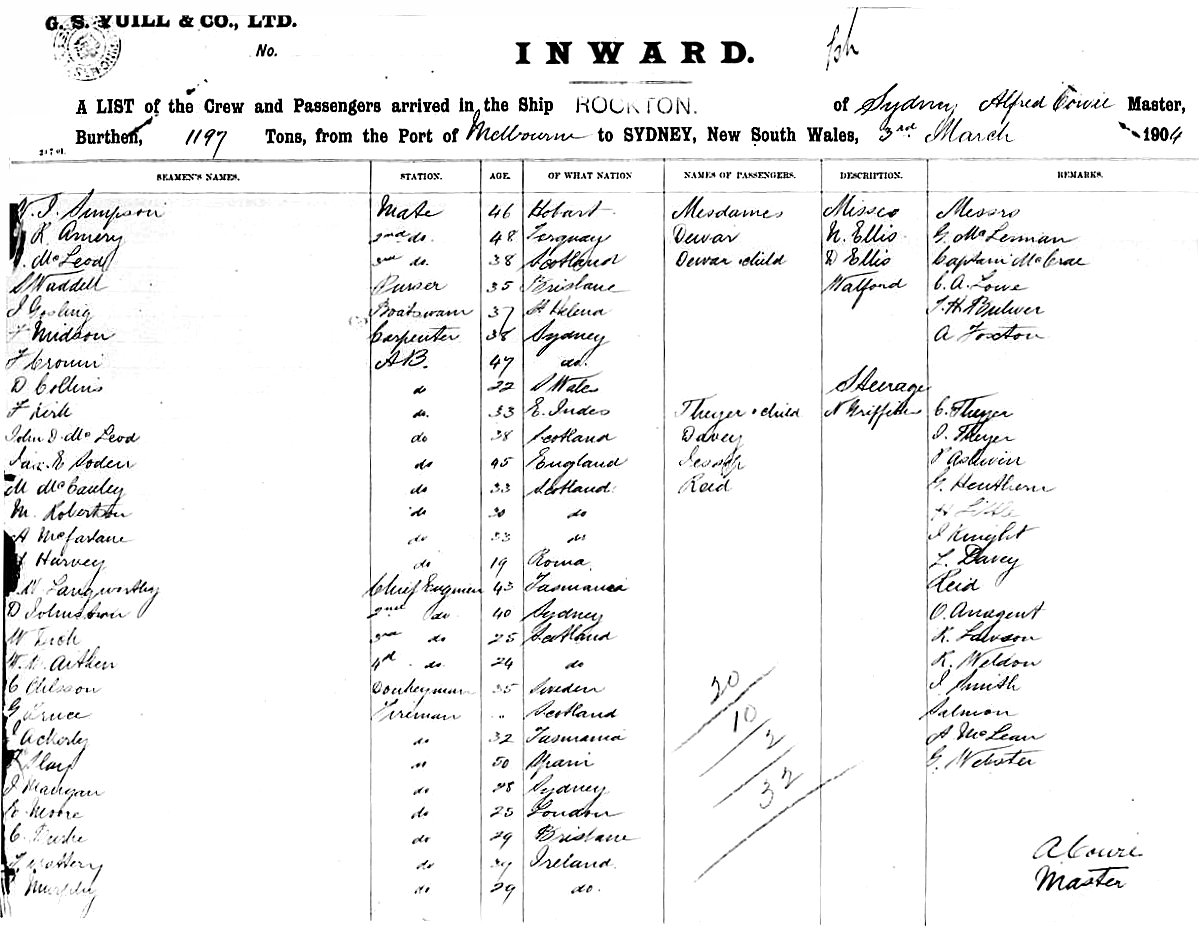 G. S. YUILL & CO., LTD.
No.
INWARD.
A LIST of the Crew and Passengers arrived in the Ship ROCKTON. of Sydney Alfred Cowie Master,
Burthen, 1197 Tons, from the Port of Melbourne to SYDNEY, New South Wales, 3rd March 1904
SEAMEN'S NAMES. STATION. AGE. OF WHAT NATION NAMES OF PASSENGERS. DESCRIPTION. REMARKS.
Simpson Mate 46 Hobart Mesdames Misses Messrs
R Amery 2nd do. 48 Torquay Dewar N. Ellis G. McLennan
McLeod 3rd do. 38 Scotland Dewar & child D Ellis Captain McCrae
S Waddell Purser 35 Brisbane Watford C. A. Lowe
J Gosling Boatswain 37 St Helena J. H. Bulwer
F Midson Carpenter 38 Sydney A Foxton
F Cronin AB. 47 do.
D Collins do 22 S Wales Steerage
F Kirk do. 33 E. Indes Theyer & child N Griffiths C. Theyer
John D. McLeod do 38 Scotland Davey J. Theyer
Jas. E Soden do 45 England Jessop P Ashwin
M McCauley do 33 Scotland Reid G. Henthorn
M. Robertson do 30 do H Little
A McFarlane do 33 do J Knight
Harvey do 19 Roma. L. Davey
W Langworthy Chief Engineer 43 Tasmania Reid
D Johnston 2nd do. 40 Sydney O.
W 3rd do 25 Scotland R. Lawson
W. W. Aitken 4th do. 24 do R. Weldon
C Ohlsson Donkeyman 35 Sweden J. Smith
G Bruce Fireman „ Scotland Salmon
Ackerly do 32 Tasmania A McLean
do 50 Spain G. Webster
J Mangan do 28 Sydney
E Moore do 25 London
C do 29 Brisbane
do 39 Ireland.
Murphy do 29 do.
20
10
2
32
A Cowie
Master